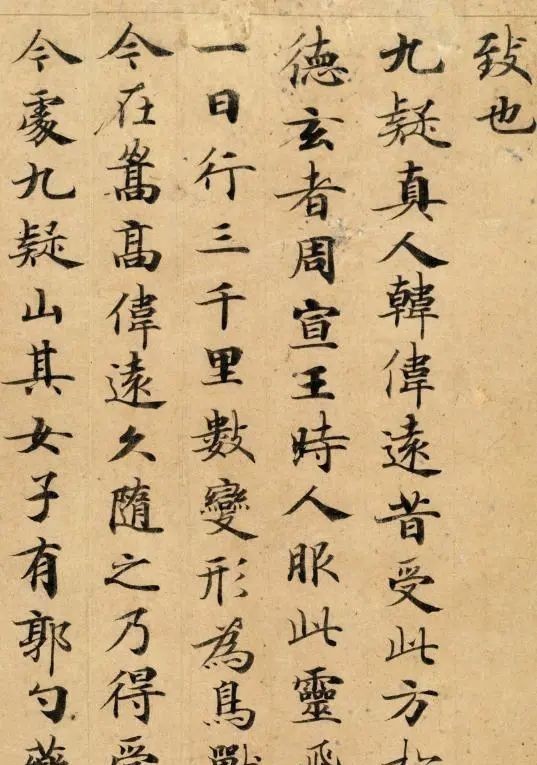 致也
九疑真人韓偉遠昔受此方於
德玄者周宣王時人服此靈飛
一日行三千里數變形為鳥獸
今在嵩高偉遠久隨之乃得受
今處九疑山其女子有郭勺藥